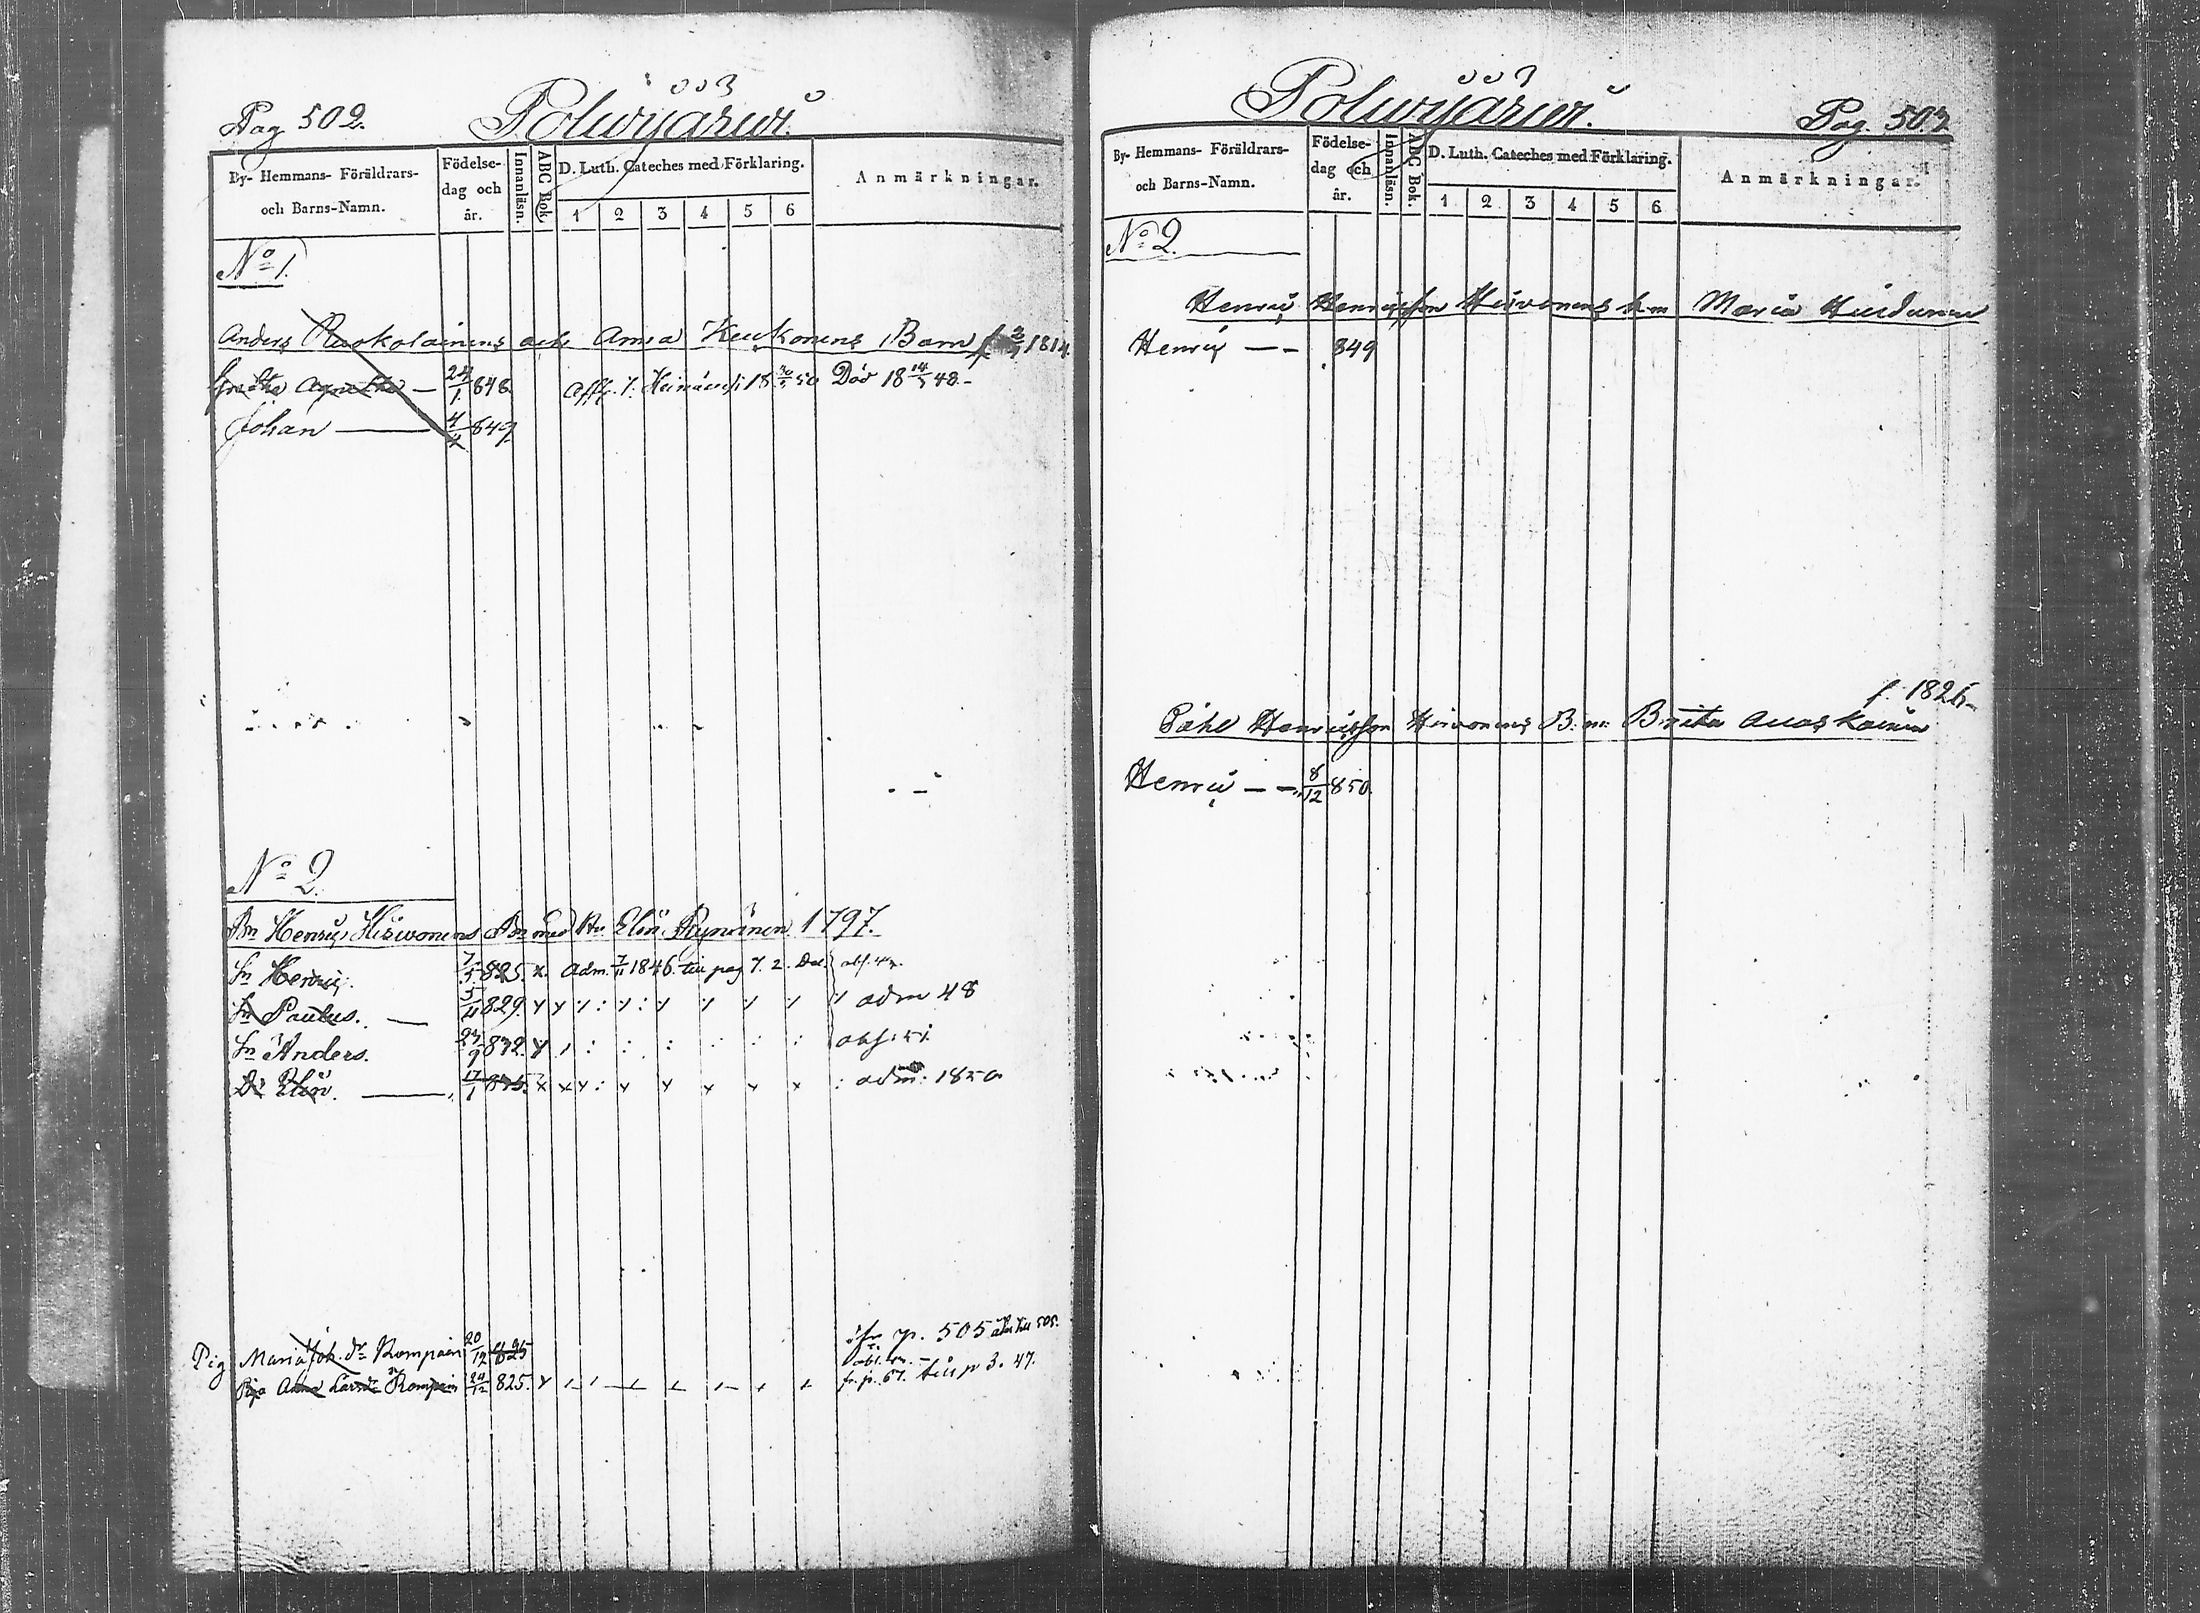 Pag 502.
Polwijärwi.
By- Hemmans- Föräldrars- och Barns-Namn.
Födelse- dag och år.
Innanläsn.
ABC Bok.
D. Luth. Cateches med Förklaring.
1 2 3 4 5 6
Anmärkningar.
No 1.
Anders Ruokolainens och Anna Keukonens Barn 1814
Gretha Agnetha — 24/1 848. Död 18 14/5 48.
Johan — 4/4 849
No 2.
Bn Henric Hirwonens Bn med Hu Elin Rynänen 1797.
Sn Henric. 7/5 825. x. adm. 1846. till pag 7. 2. Del.
Sn Paulus. — 5/11 829. adm 48
Sn Anders. 29/9 832.
Dr Elin. — 17/1 835. adm. 1850
Pig Maria Joh. dr Rompain 20/12 825 p. 505
Piga Anna Larsdr Rompain 24/12 825. fr. p. 67. till p 3. 47.
Polwijärwi.
Pag. 503.
By- Hemmans- Föräldrars- och Barns-Namn.
Födelse- dag och år.
Innanläsn.
ABC Bok.
D. Luth. Cateches med Förklaring.
1 2 3 4 5 6
Anmärkningar.
No 2.
Henric Henricsson Hirvonens b. m Maria
Henric — – 849
f. 1826
Påhl Henricsson Hirvonens B. m: Brita
Henric — – 8/12 850.